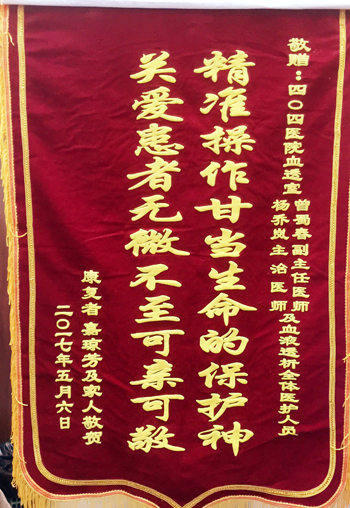 敬赠：四〇四医院血透室
曾蜀春副主任医师
杨乔岚主治医师
及血液透析全体医护人员
精准操作甘当生命的保护神
关爱患者无微不至可亲可敬
康复者嘉琼芳及家人敬贺
二〇一七年五月六日